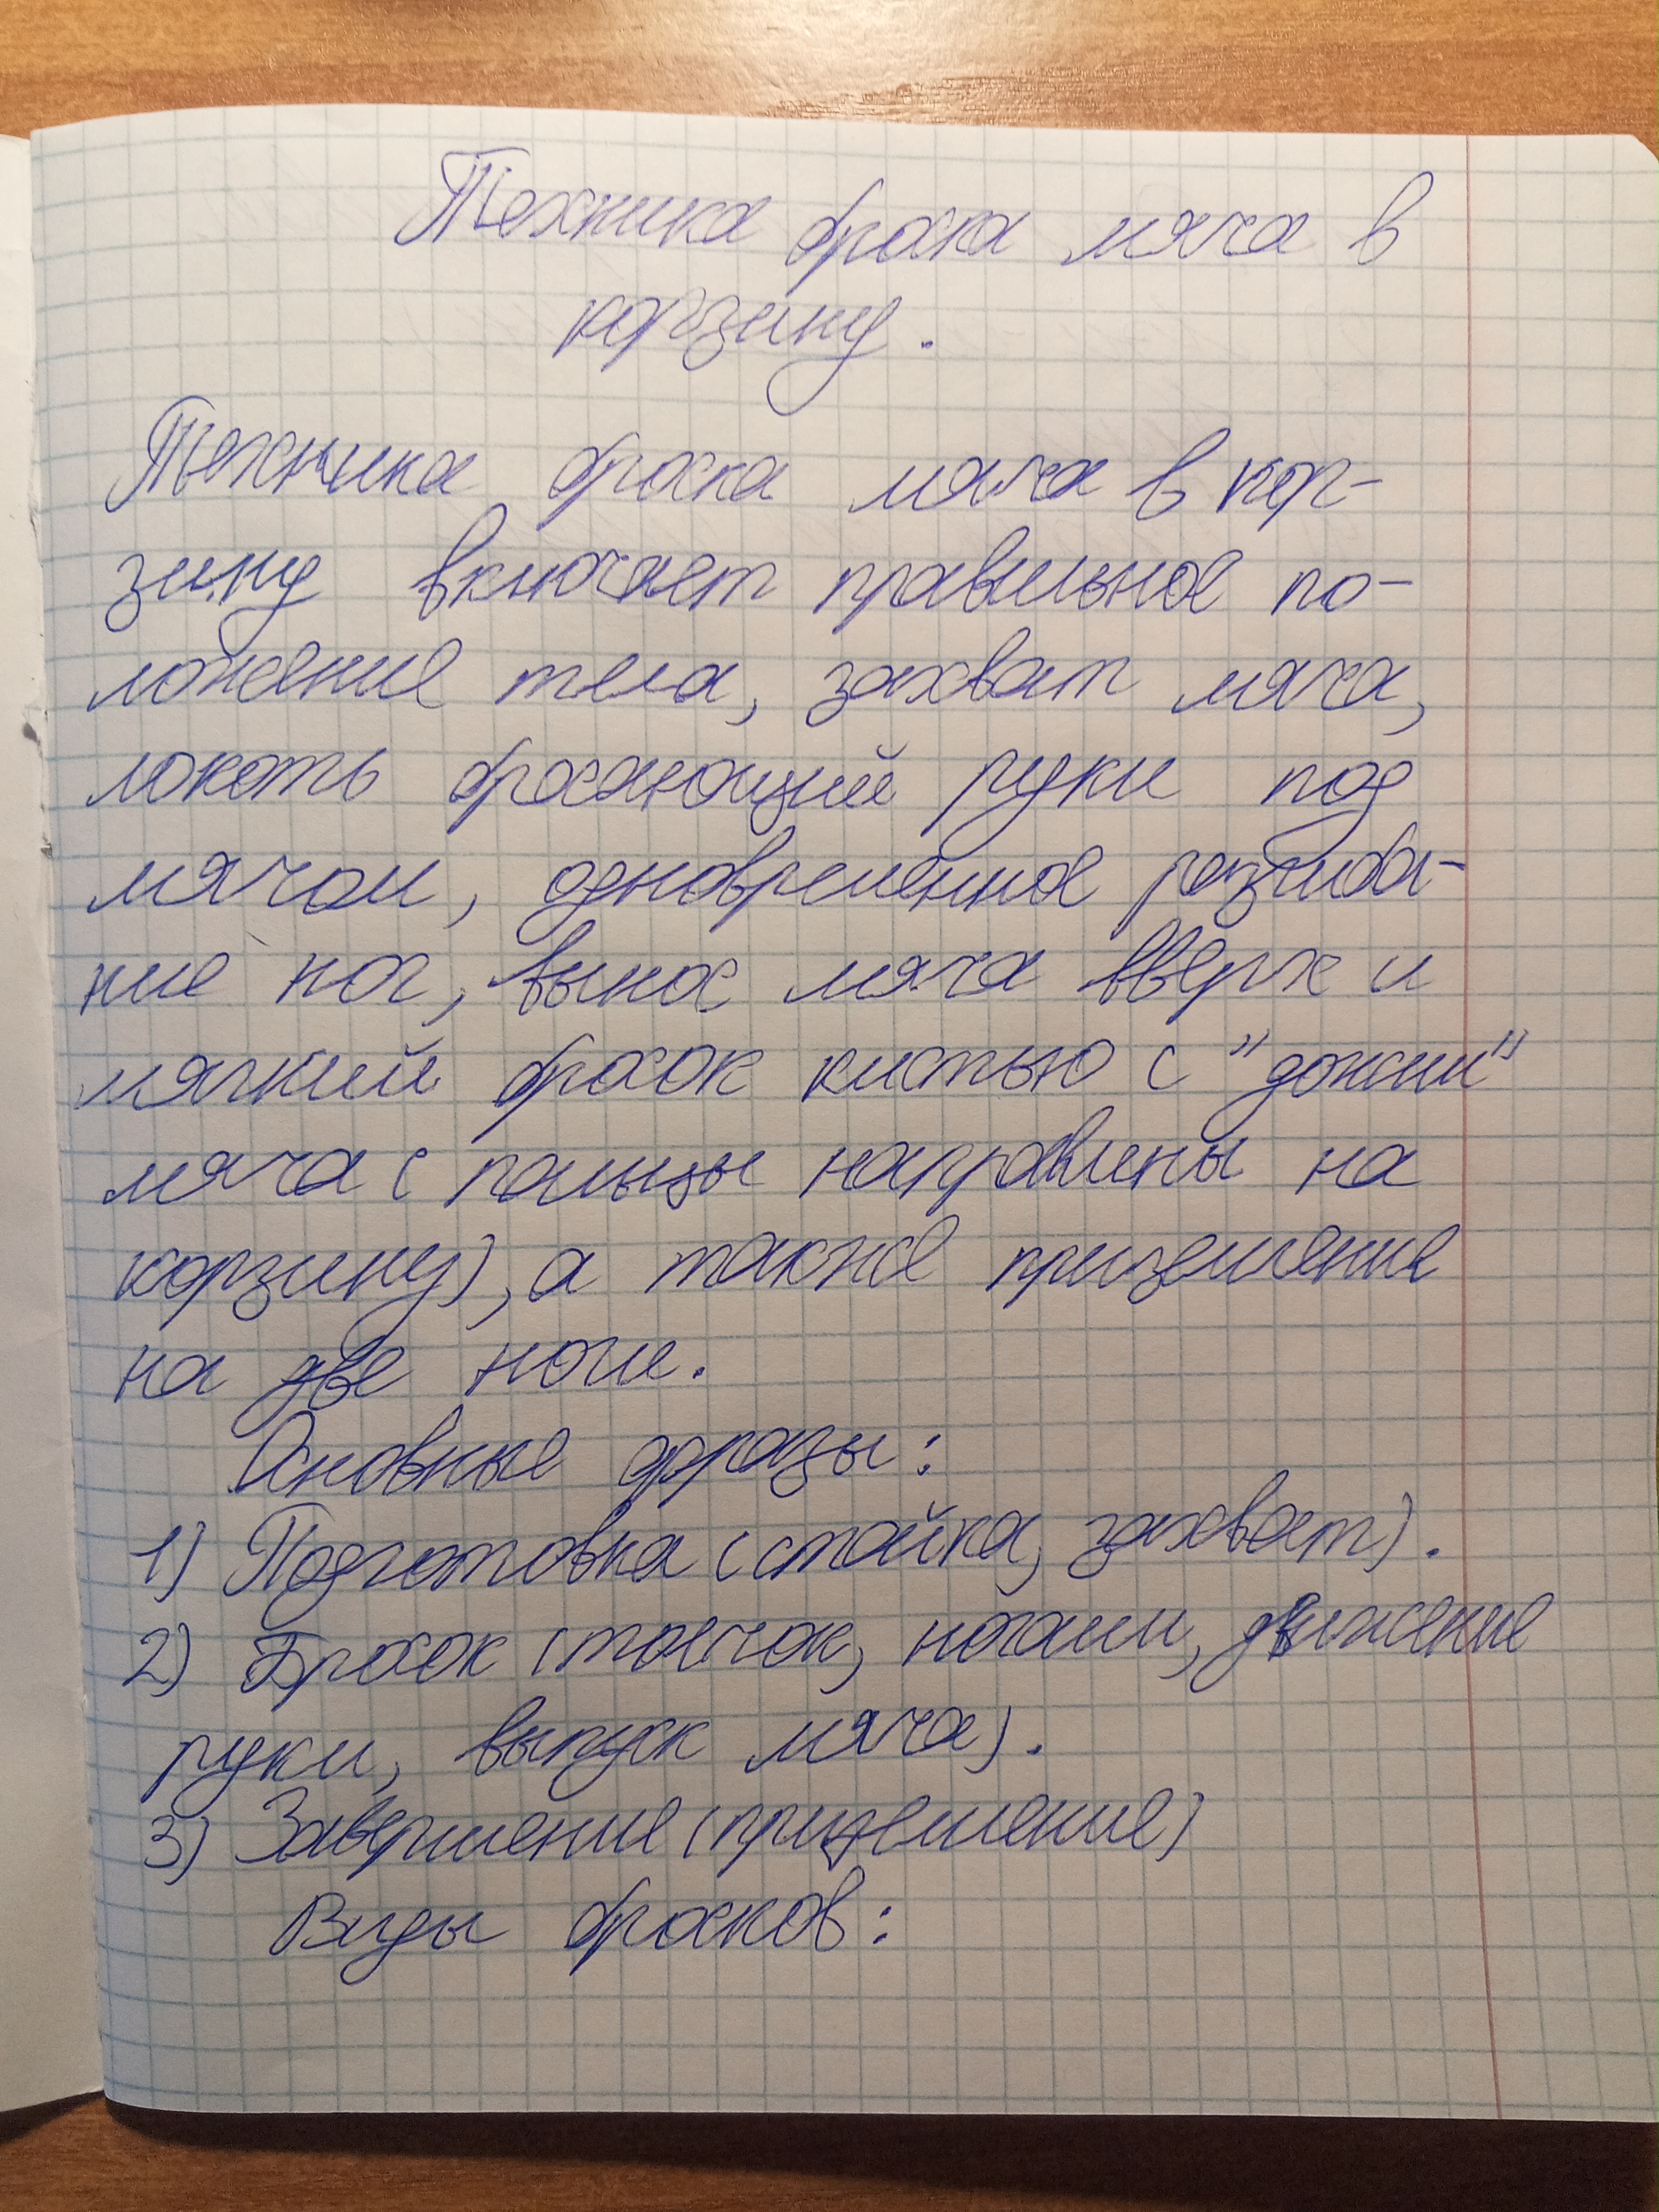 Техника броска мяча в
корзину.
Техника броска мяча в кор-
зину включает правильное по-
ложение тела, захват мяча,
локоть бросающий руки под
мячом, одновременное разгиба-
ние ног, вынос мяча вверх и
мягкий бросок кистью с "дожим"
мяча (пальцы направлены на
корзину), а также приземление
на две ноги.
Основные фразы:
1) Подготовка (стойка, захват).
2) Бросок (толчок, ногами, движение
руки, выпуск мяча).
3) Завершение (приземление)
Виды бросков: